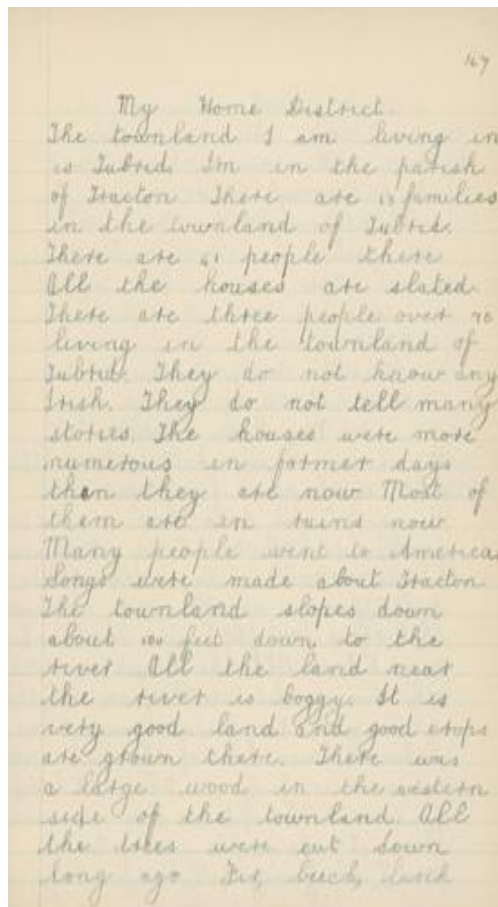 167
My Home District
The townland I am living in
is Tubrid. I'm in the parish
of Tracton There are 13 families
in the townland of Tubrid.
There are 61 people there
All the houses are slated.
There are three people over 70
living in the townland of
Tubrid. They do not know any
Irish. They do not tell many
stories The houses were more
numerous in former days
then they are now Most of
them are in ruins now
Many people went to America
Songs were made about Tracton
The townland slopes down
about 100 feet down to the
river All the land near
the river is boggy. It is
very good land and good crops
are grown there. There was
a large wood in the western
side of the townland. All
the trees were cut down
long ago Fir, beech, larch